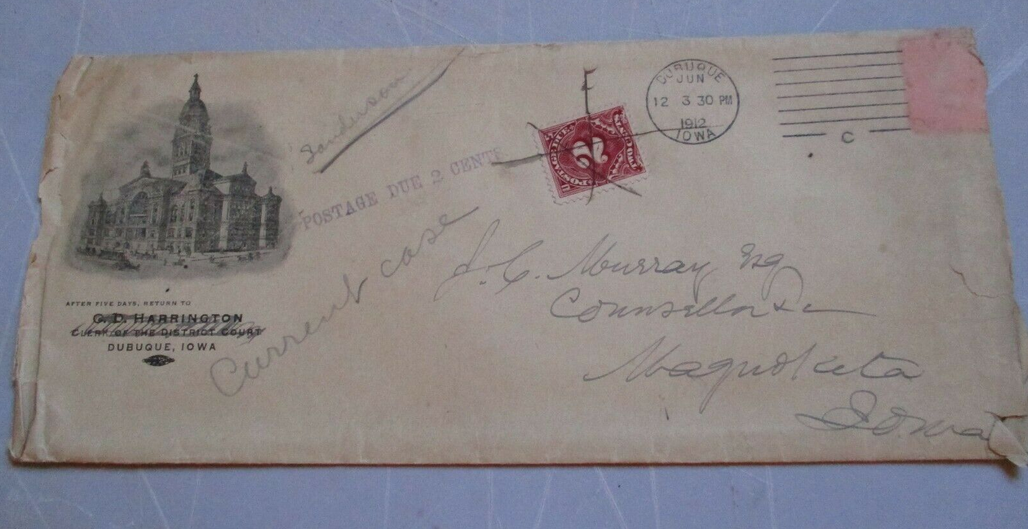 Sanderson
POSTAGE DUE 2 CENTS
Current case
AFTER FIVE DAYS, RETURN TO
G. D. HARRINGTON
CLERK OF THE DISTRICT COURT
DUBUQUE, IOWA
POSTAGE DUE
2
DUBUQUE
JUN
12 3 30 PM
1912
IOWA
C
J. C. Murray Esq
Counsellor &c
Maquoketa
Iowa